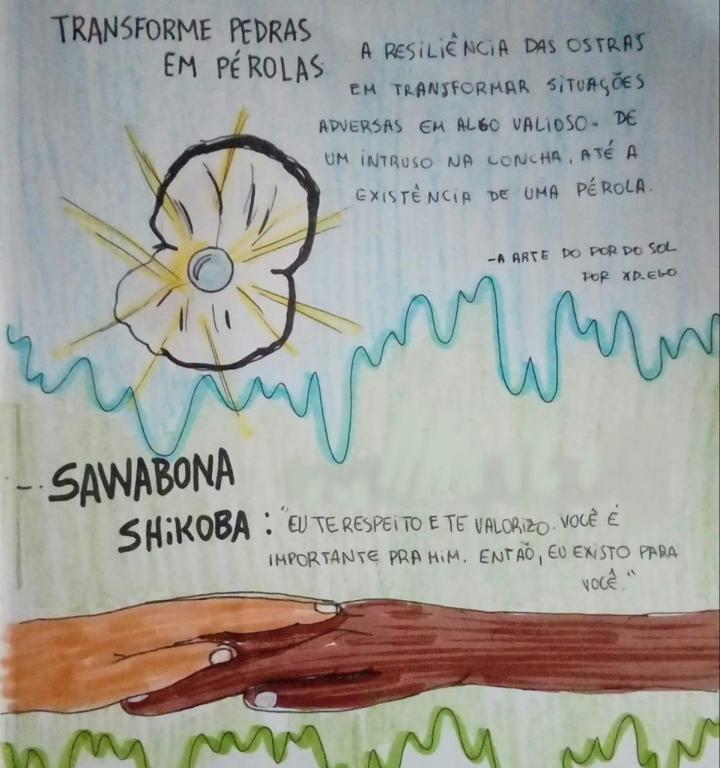 TRANSFORME PEDRAS
EM PÉROLAS
A RESILIÊNCIA DAS OSTRAS
EM TRANSFORMAR SITUAÇÕES
ADVERSAS EM ALGO VALIOSO. DE
UM INTRUSO NA CONCHA, ATÉ A
EXISTÊNCIA DE UMA PÉROLA.
-A ARTE DO POR DO SOL
POR XD_EGO
-. SAWABONA
SHIKOBA: "EU TE RESPEITO E TE VALORIZO. VOCÊ É
IMPORTANTE PRA MIM. ENTÃO, EU EXISTO PARA
VOCÊ."